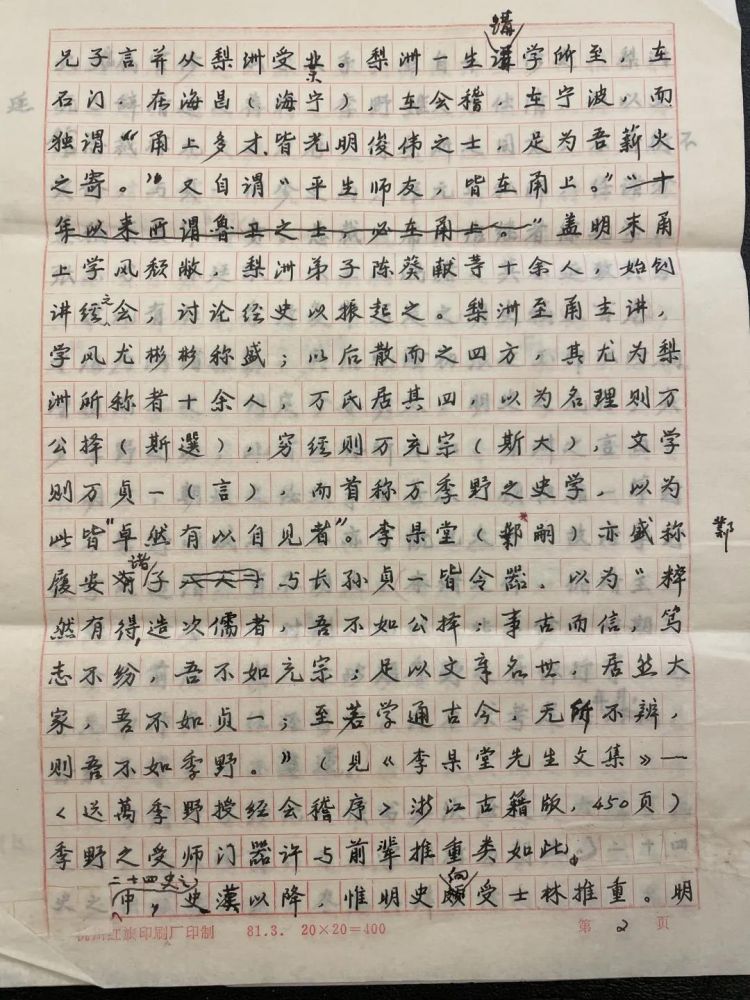 兄子言并从梨洲受业。梨洲一生讲学所至，在
石门，在海昌（海宁），在会稽，在宁波，而
独谓“甬上多才，皆光明俊伟之士，足为吾薪火
之寄。”又自谓“平生师友，皆在甬上。”“十
年以来所谓鲁卫之士，必在甬上。”盖明末甬
上学风颓敝，梨洲弟子陈葵献等十余人，始创
讲经之会，讨论经史以振起之。梨洲至甬主讲，
学风尤彬彬称盛；以后散而之四方，其尤为梨
洲所称者十余人，万氏居其四，以为名理则万
公择（斯選），穷经则万充宗（斯大），文学
则万贞一（言），而首称万季野之史学，以为
此皆“卓然有以自见者”。李杲堂（鄴嗣）亦盛称
鄴
履安诸子与长孙贞一皆令器，以为“粹
然有得，造次儒者，吾不如公择；事古而信，篤
志不纷，吾不如充宗；足以文章名世，居然大
家，吾不如贞一；至若学通古今，无所不辨，
则吾不如季野。”（见《李杲堂先生文集》—
〈送萬季野授经会稽序〉浙江古籍版，450页）
季野之受师门器许与前辈推重类如此。
二十四史之中，史漢以降，惟明史向受士林推重。明
杭州红旗印刷厂印制 81.3. 20×20=400 第2页